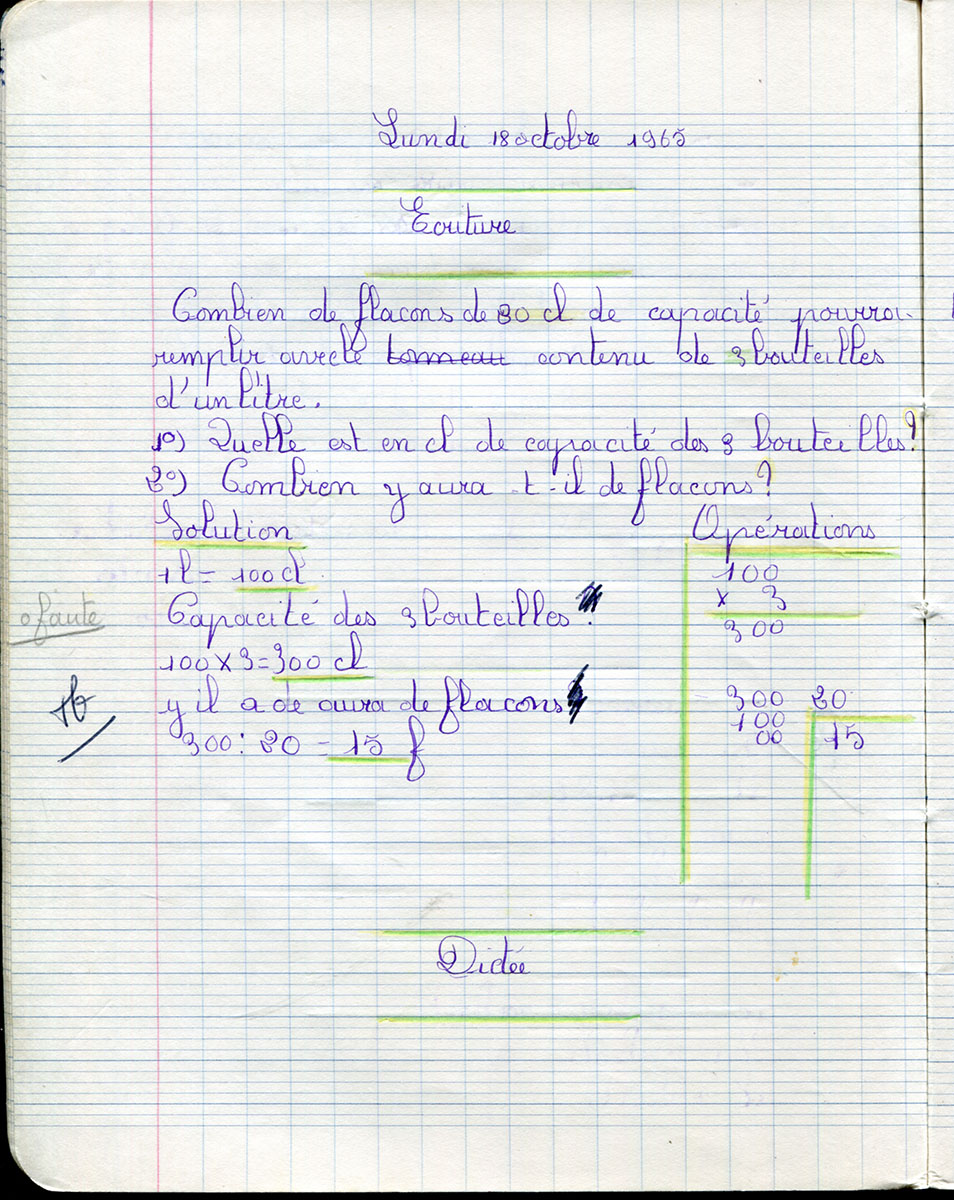 Lundi 18 octobre 1965
Ecriture
Combien de flacons de 20 cl de capacité pourra-
remplir avec le tonneau contenu de 3 bouteilles
d'un litre.
1º) Quelle est en cl de capacité des 3 bouteilles?
2º) Combien y aura-t-il de flacons?
Solution
1 l = 100 cl
0 faute
Capacité des 3 bouteilles
100 x 3 = 300 cl
Tb
y il a de aura de flacons
300 : 20 = 15 f
Opérations
100
x 3
300
300 20
100
00 15
Dictée